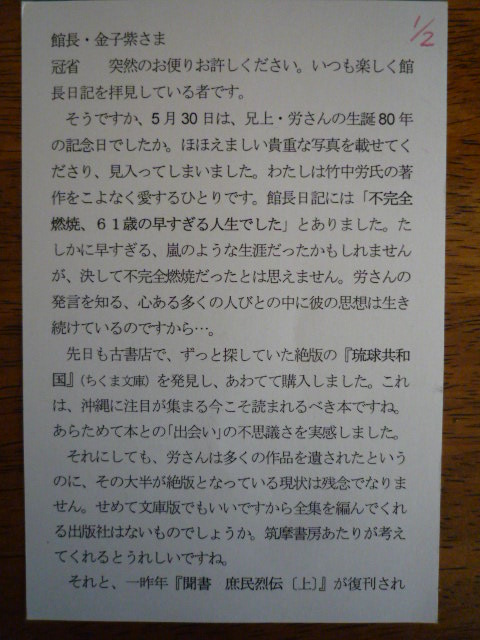 1/2
館長・金子紫さま
冠省　　突然のお便りお許しください。いつも楽しく館
長日記を拝見している者です。
　そうですか、５月30日は、兄上・労さんの生誕80年
の記念日でしたか。ほほえましい貴重な写真を載せてく
ださり、見入ってしまいました。わたしは竹中労氏の著
作をこよなく愛するひとりです。館長日記には「不完全
燃焼、６１歳の早すぎる人生でした」とありました。た
しかに早すぎる、嵐のような生涯だったかもしれません
が、決して不完全燃焼だったとは思えません。労さんの
発言を知る、心ある多くの人びとの中に彼の思想は生き
続けているのですから…。
　先日も古書店で、ずっと探していた絶版の『琉球共和
国』（ちくま文庫）を発見し、あわてて購入しました。これ
は、沖縄に注目が集まる今こそ読まれるべき本ですね。
あらためて本との「出会い」の不思議さを実感しました。
　それにしても、労さんは多くの作品を遺されたという
のに、その大半が絶版となっている現状は残念でなりま
せん。せめて文庫版でもいいですから全集を編んでくれ
る出版社はないものでしょうか。筑摩書房あたりが考え
てくれるとうれしいですね。
　それと、一昨年『聞書　庶民烈伝〔上〕』が復刊され